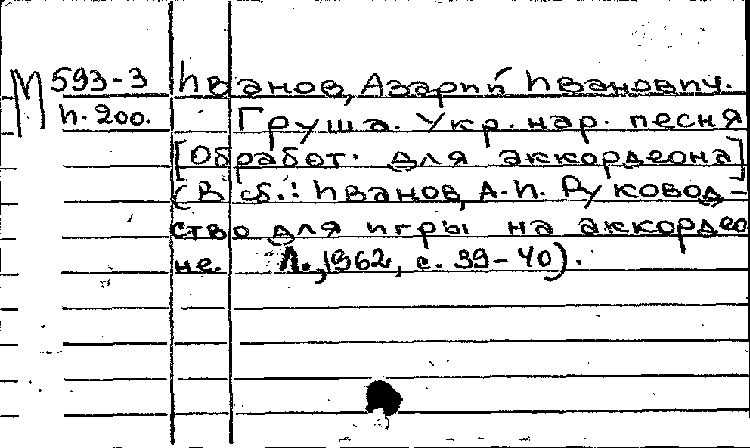 М 593-3 Иванов, Азарий Иванович.
И. 200. Груша. Укр. нар. песня
[Обработ. для аккордеона]
(В сб.: Иванов, А. И. Руковод-
ство для игры на аккордео
не. Л., 1962, с. 39-40).